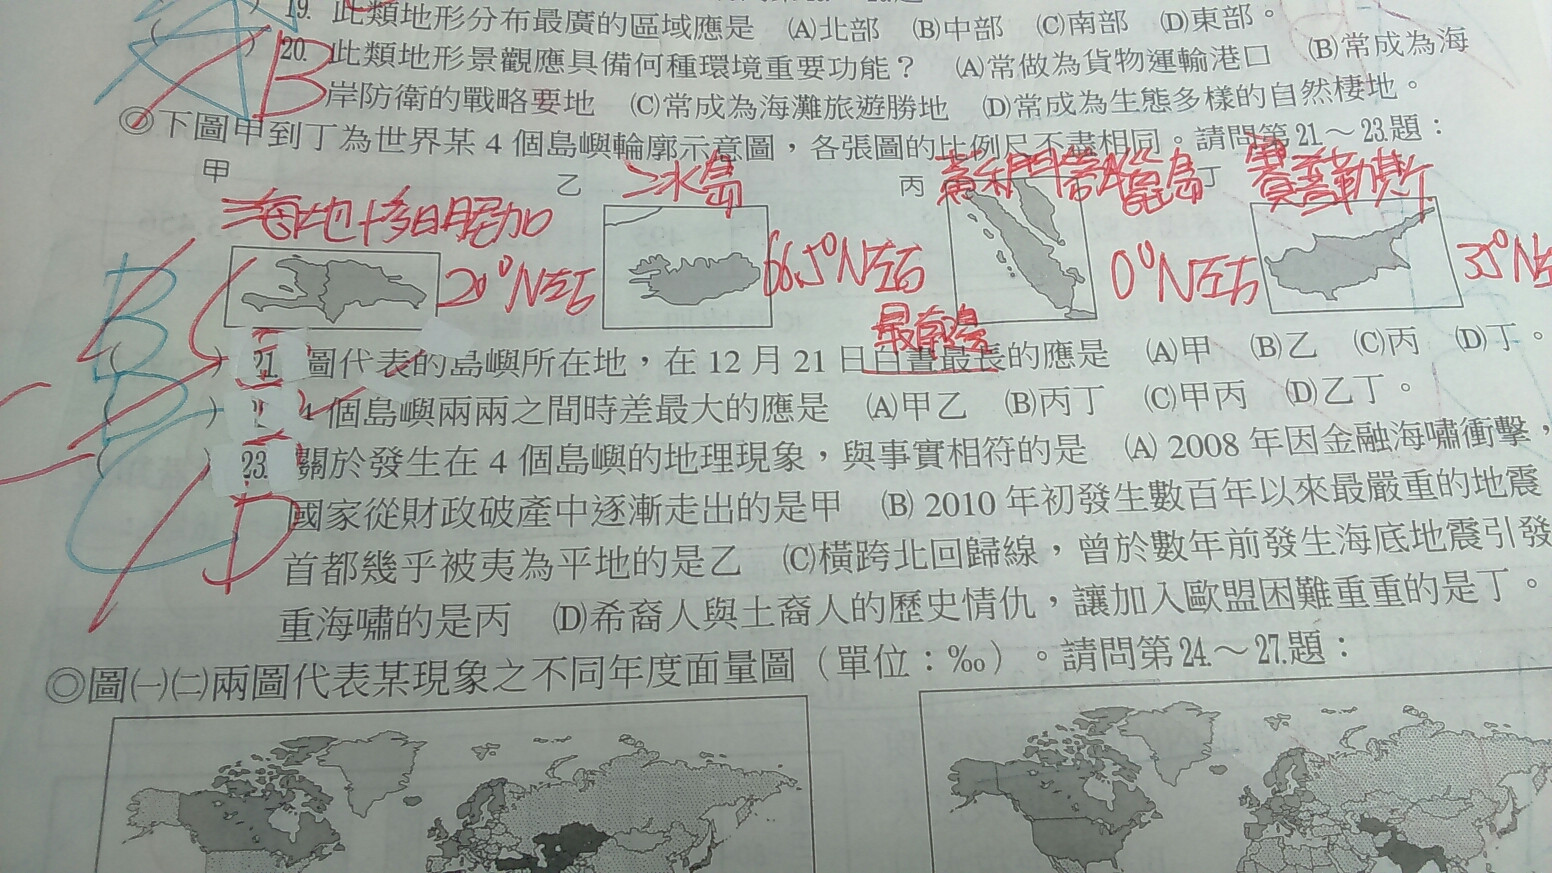 19. 此類地形分布最廣的區域應是 (A)北部 (B)中部 (C)南部 (D)東部。
20. 此類地形景觀應具備何種環境重要功能？ (A)常做為貨物運輸港口 (B)常成為海
B
岸防衛的戰略要地 (C)常成為海灘旅遊勝地 (D)常成為生態多樣的自然棲地。
◎下圖甲到丁為世界某4個島嶼輪廓示意圖，各張圖的比例尺不盡相同。請問第21.～23.題：
甲 乙 丙 丁
海地 多明尼加 冰島 賽普勒斯
20°N左右 66.5°N左右 0°N左右 35°N左
最南邊
B C ( ) 21. 圖代表的島嶼所在地，在12月21日白晝最長的應是 (A)甲 (B)乙 (C)丙 (D)丁。
B ) 4個島嶼兩兩之間時差最大的應是 (A)甲乙 (B)丙丁 (C)甲丙 (D)乙丁。
C D ( ) 23. 關於發生在4個島嶼的地理現象，與事實相符的是 (A) 2008年因金融海嘯衝擊，
國家從財政破產中逐漸走出的是甲 (B) 2010年初發生數百年以來最嚴重的地震
首都幾乎被夷為平地的是乙 (C)橫跨北回歸線，曾於數年前發生海底地震引發
重海嘯的是丙 (D)希裔人與土裔人的歷史情仇，讓加入歐盟困難重重的是丁。
◎圖㈠㈡兩圖代表某現象之不同年度面量圖（單位：‰）。請問第24.～27.題：